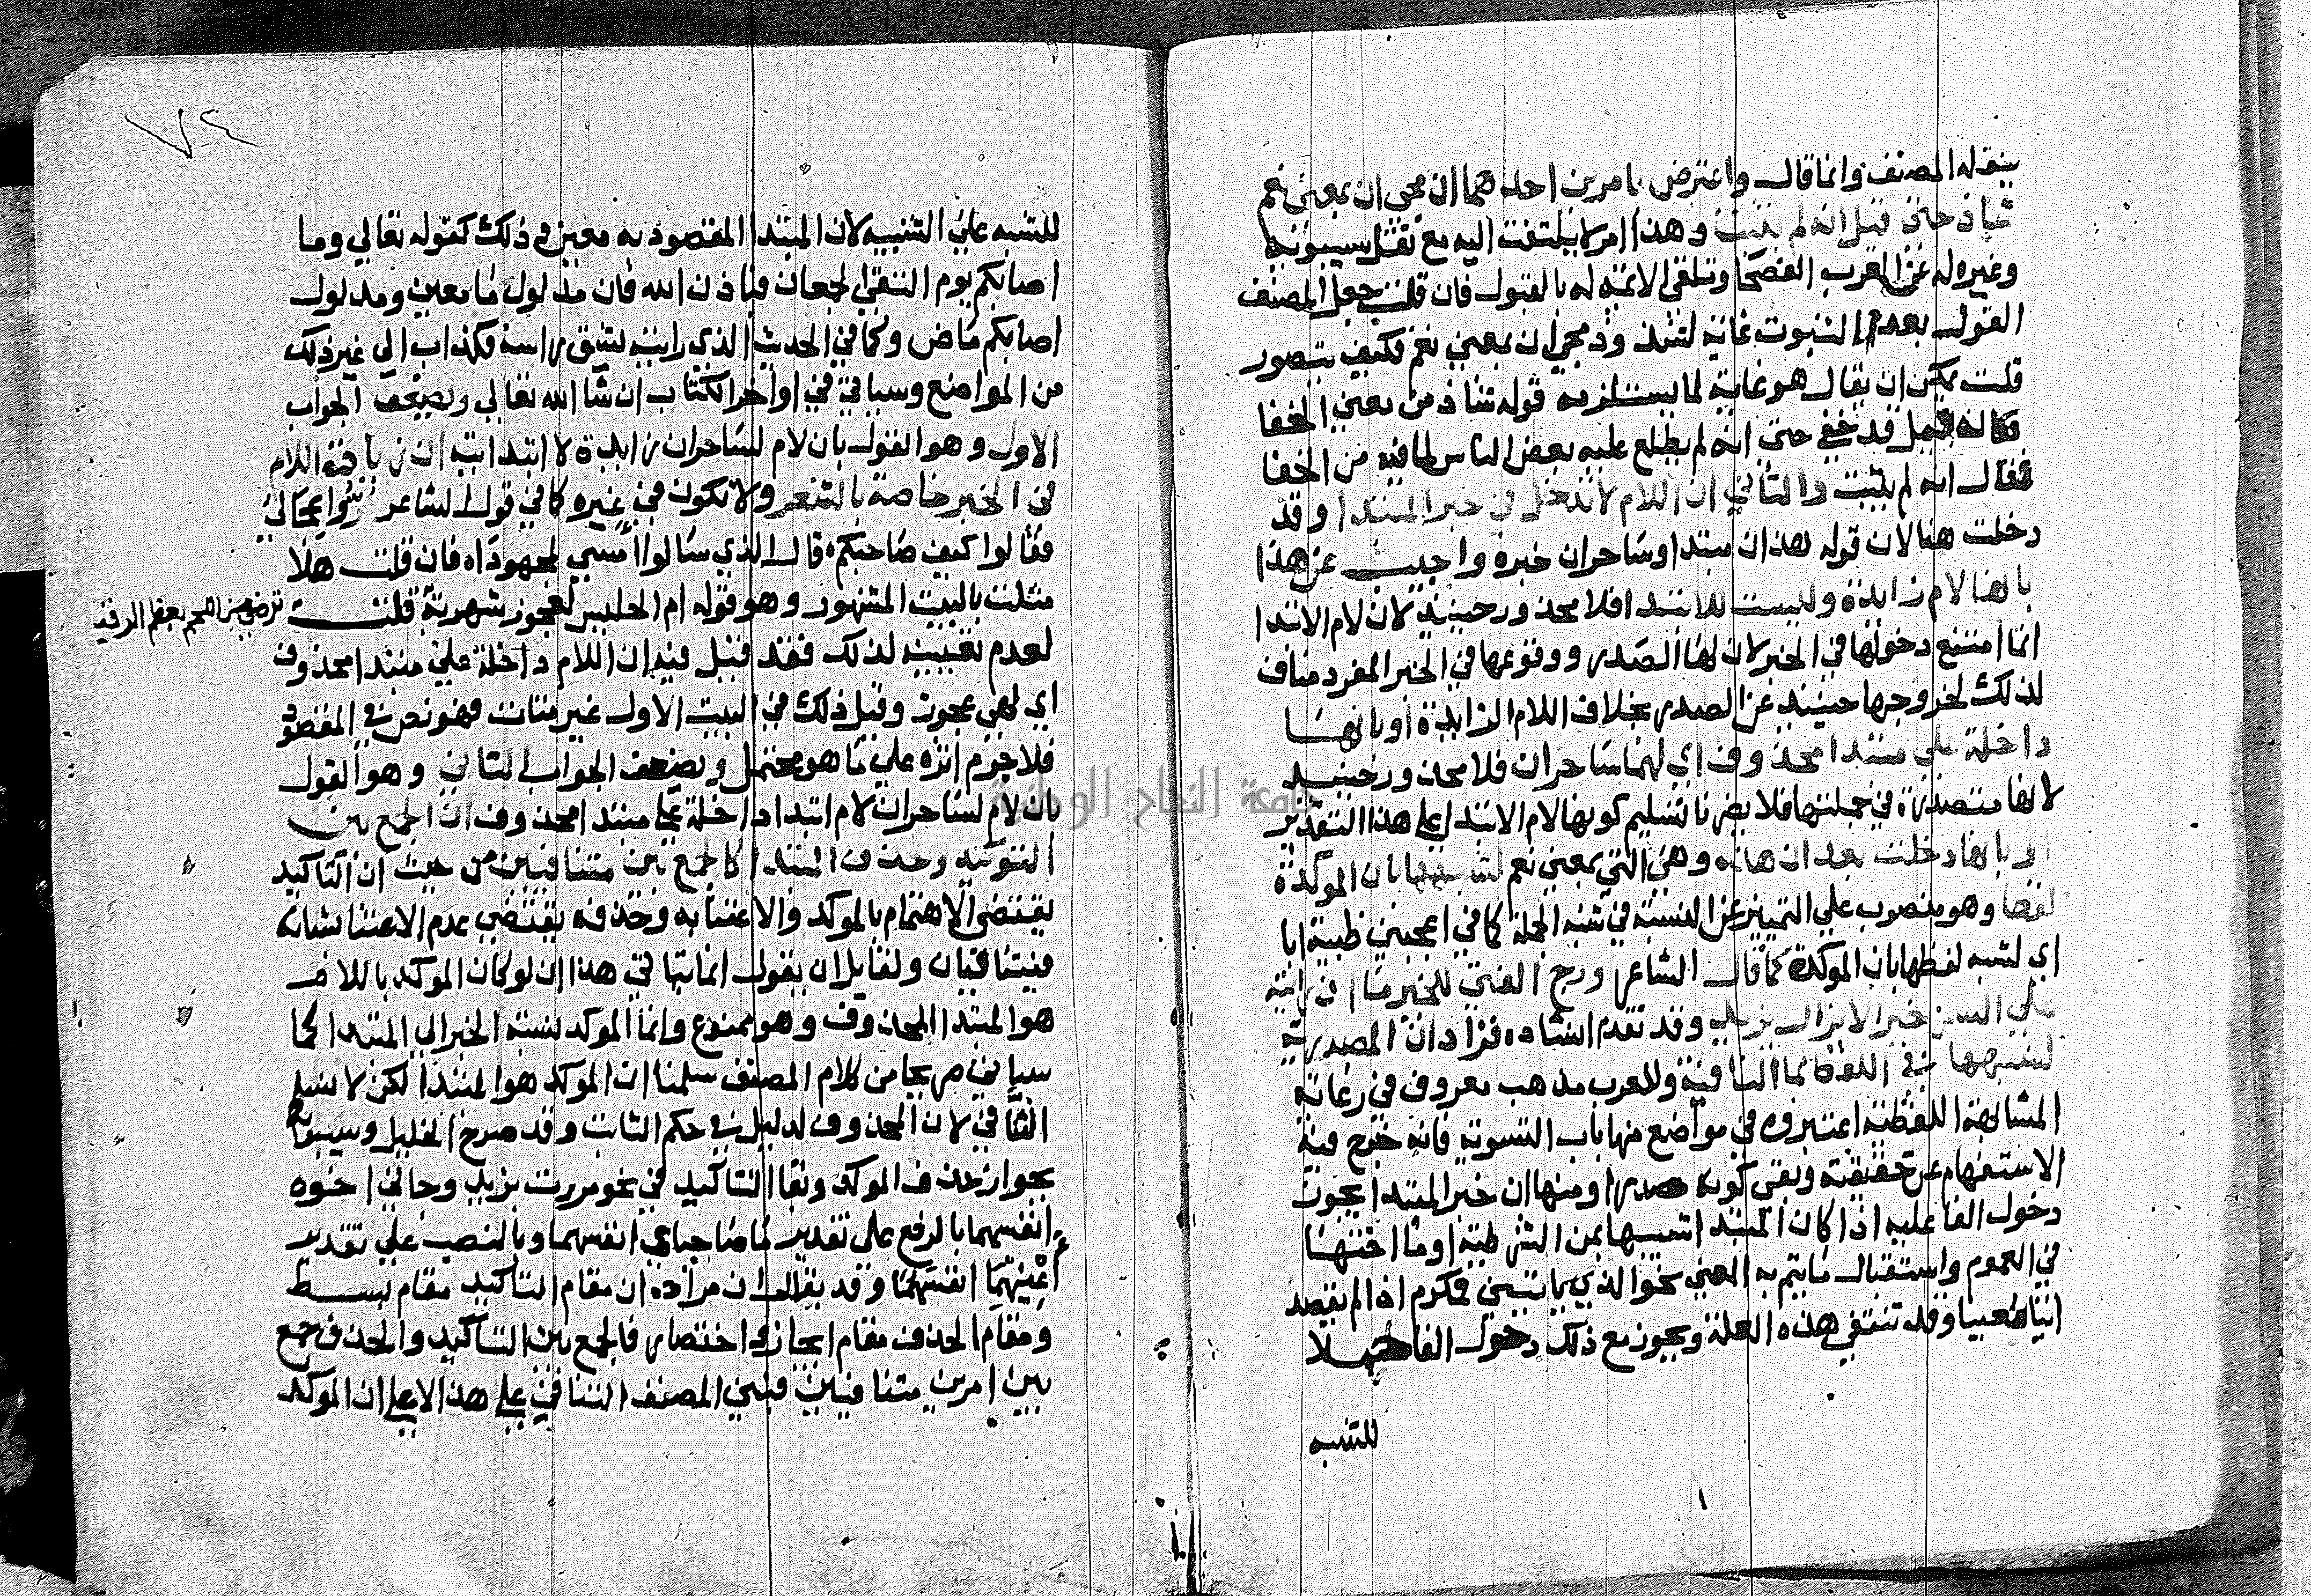 يقوله المصنف وانما قال واعترض بامرين احدهما ان مجي ان بمعني نعم
شاذ حتي قيل انه لم يثبت وهذا امر لا يلتفت اليه مع نقل سيبويه
وغيره له عن العرب الفصحا وتلقي الائمة له بالقبول فان قلت جعل المصنف
القول بعدم الثبوت غاية لشذوذ مجي ان بمعني نعم فكيف يتصور
قلت يمكن ان يقال هو غاية لما يستلزمه قوله شاذ من معني الخفا
فكانه قيل قد خفي حتي انه لم يطلع عليه بعض الناس لما فيه من الخفا
فقال انه لم يثبت والثاني ان اللام لا تدخل في خبر المبتدا وقد
دخلت هنا لان قوله هذان مبتدا وساحران خبره واجيب عن هذا
بانها لام زايدة وليست للابتدا فلا محذور حينيذ لان لام الابتدا
انما امتنع دخولها في الخبر لان لها الصدر ووقوعها في الخبر المفرد مناف
لذلك لخروجها حينيذ عن الصدر بخلاف اللام الزايدة او بانها
داخلة علي مبتدا محذوف اي لهما ساحران فلا محذور حينيذ
لانها متصدرة في جملتها فلا يضرنا تسليم كونها لام الابتدا علي هذا التقدير
او بانها دخلت بعد ان هذه وهي التي بمعني نعم لشبهها بان الموكدة
لفظا وهو منصوب علي التمييز عن النسبة في شبه الجملة كما في اعجبني طيبه ابا
اي لشبه لفظها بان الموكدة كما قال الشاعر ورج الفتي للخير ما ان رايته
علي السن خيرا لا يزال يزيد وقد تقدم انشاده فزاد ان المصدرية
لشبهها في اللفظ بما النافية وللعرب مذهب معروف في رعاية
المشابهة اللفظية اعتبروه في مواضع منها باب التسوية فانه خرج فيه
الاستفهام عن حقيقته وبقي كونه صدرا ومنها ان خبر المبتدا يجوز
دخول الفا عليه اذا كان المبتدا شبيها بمن الشرطية او ما اختها
في العموم واستقبال ما يتم به المعني نحو الذي ياتيني فمكرم اذا لم يقصد
اتيا معينا وقد تنتفي هذه العلة ويجوز مع ذلك دخول الفا حملا
للتنبيه
٧٤
للشبه علي الشبيه لان المبتدا المقصود به معين في ذلك كقوله تعالي وما
اصابكم يوم التقي الجمعان فباذن الله فان مدلول ما معين ومدلول
اصابكم ماض وكما في الحديث الذي رايته يشق راسه فكذاب الي غير ذلك
من المواضع وسياتي في اواخر الكتاب ان شا الله تعالي ويضعف الجواب
الاول وهو القول بان لام لساحران زايدة لا ابتدائية ان زيادة اللام
في الخبر خاصة بالشعر ولا تكون في غيره كما في قول الشاعر مروا عجالي
فقالوا كيف صاحبكم قال الذي سالوا امسي لمجهودا ه فان قلت هلا
مثلت بالبيت المشهور وهو قوله ام الحليس لعجوز شهربة قلت
ترضي من اللحم بعظم الرقبه
لعدم تعيينه لذلك فقد قيل فيه ان اللام داخلة علي مبتدا محذوف
اي لهي عجوز وقيل ذلك في البيت الاول غير متات فهو نص في المقصود
فلا جرم اثره علي ما هو محتمل ويضعف الجواب الثاني وهو القول
بان لام لساحران لام ابتدا داخلة علي مبتدا محذوف ان الجمع بين
التوكيد وحذف المبتدا كالجمع بين متنافيين من حيث ان التاكيد
يقتضي الاهتمام بالموكد والاعتنا به وحذفه يقتضي عدم الاعتنا بشانه
فيتنافيان ولقايل ان يقول انما ياتي هذا ان لو كان الموكد باللام
هو المبتدا المحذوف وهو ممنوع وانما الموكد نسبة الخبر الي المبتدا كما
سياتي صريحا من كلام المصنف سلمنا ان الموكد هو المبتدا لكن لا نسلم
التنافي لان المحذوف لدليل في حكم الثابت وقد صرح الخليل وسيبويه
بجواز حذف الموكد وبقا التاكيد في نحو مررت بزيد وجاني اخوه
انفسهما بالرفع علي تقدير هما صاحباي انفسهما وبالنصب علي تقدير
اعنيهما انفسهما وقد يقال ان مراده ان مقام التاكيد مقام بسط
ومقام الحذف مقام ايجاز واختصار فالجمع بين التاكيد والحذف جمع
بين امرين متنافيين فبني المصنف التنافي علي هذا لا علي ان الموكد
جامعة النجاح الوطنية